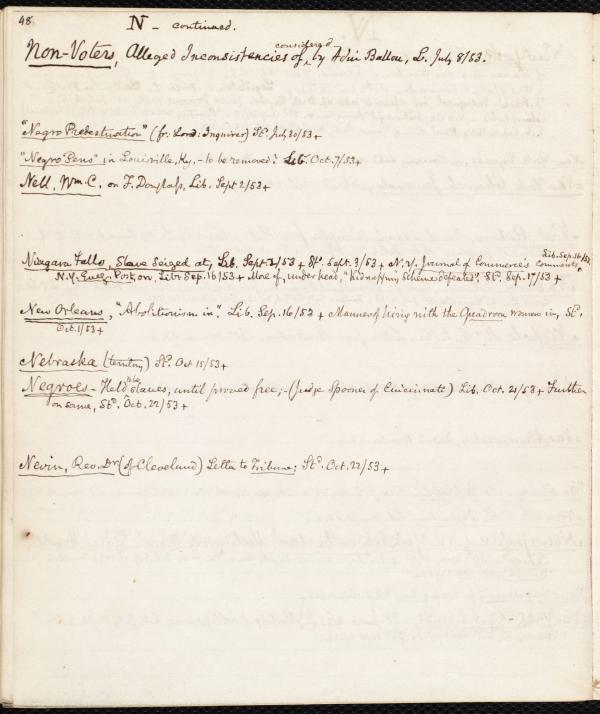 48.
N - continued.
Non-Voters, Alleged Inconsistencies of, considered by Adin Ballou, L. July 8/53.
"Negro Predestination" (fr. Lond: Inquirer) Std. July 30/53 +
"Negro Pens" in Louisville, Ky, - to be removed? Lib. Oct. 7/53 +
Nell, Wm. C. on F. Douglass, Lib. Sept 2/53 +
Niagara Falls, Slave Seized at, Lib. Sept. 2/53 + Std. Sept. 3/53 + N.Y. Journal of Commerce's comments, Lib. Sep. 16/53
N.Y. Eveg. Post, on, Lib. Sep. 16/53 + More of, under head, "Kidnapping Scheme defeated", Std. Sep. 17/53 +
New Orleans, "Abolitionism in", Lib. Sep. 16/53 + Manner of living with the Quadroon women in, Std.
Oct. 1/53 +
Nebraska (territory) Std. Oct 15/53 +
Negroes - Held to be slaves, until proved free; - (Judge Spooner of Cincinnati) Lib. Oct. 21/53 + Further
on same, Std. Oct. 22/53 +
Nevin, Rev. Dr. (of Cleveland) Letter to Tribune; Std. Oct. 22/53 +